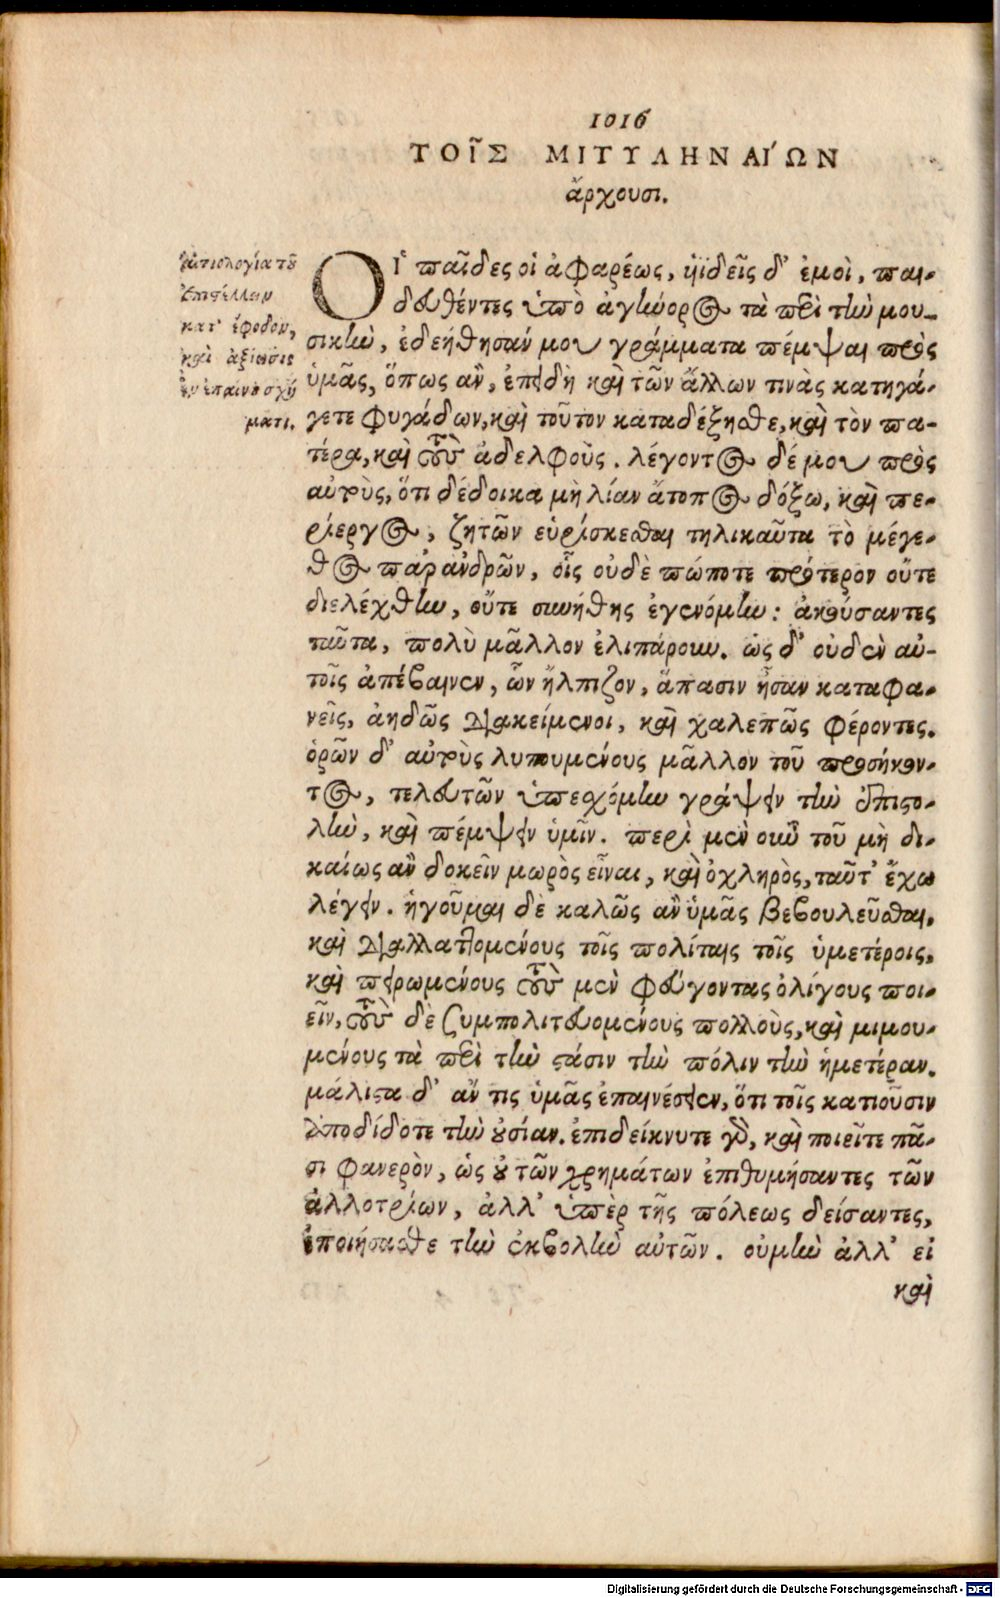 1016
ΤΟῖΣ ΜΙΤΥΛΗΝΑΙ´ΩΝ
ἄρχουσι.
αἰτιολογία τοῦ
ἐπιστέλλειν
κατ' ἔφοδον,
καὶ ἀξίωσις
ἐν ἐπαίνου σχή
ματι.
Οἱ παῖδες οἱ ἀφαρέως, ὑϊδεῖς δ' ἐμοὶ, παι-
δευθέντες ὑπὸ ἀγήνορος τὰ περὶ τὴν μου-
σικὴν, ἐδεήθησάν μου γράμματα πέμψαι πρὸς
ὑμᾶς, ὅπως ἂν, ἐπειδὴ καὶ τῶν ἄλλων τινὰς κατηγά-
γετε φυγάδων, καὶ τοῦτον καταδέξησθε, καὶ τὸν πα-
τέρα, καὶ τοὺς ἀδελφοὺς. λέγοντος δέ μου πρὸς
αὐτοὺς, ὅτι δέδοικα μὴ λίαν ἄτοπος δόξω, καὶ πε-
ρίεργος, ζητῶν εὑρίσκεσθαι τηλικαῦτα τὸ μέγε-
θος παρ' ἀνδρῶν, οἷς οὐδὲ πώποτε πρότερον οὔτε
διελέχθην, οὔτε συνήθης ἐγενόμην: ἀκούσαντες
ταῦτα, πολὺ μᾶλλον ἐλιπάρουν. ὡς δ' οὐδὲν αὐ-
τοῖς ἀπέβαινεν, ὧν ἤλπιζον, ἅπασιν ἦσαν καταφα-
νεῖς, ἀηδῶς διακείμενοι, καὶ χαλεπῶς φέροντες.
ὁρῶν δ' αὐτοὺς λυπουμένους μᾶλλον τοῦ προσήκον-
τος, τελευτῶν ὑπεσχόμην γράψειν τὴν ἐπιστο-
λὴν, καὶ πέμψειν ὑμῖν. περὶ μὲν οὖν τοῦ μὴ δι-
καίως ἂν δοκεῖν μωρὸς εἶναι, καὶ ὀχληρὸς, ταῦτ' ἔχω
λέγειν. ἡγοῦμαι δὲ καλῶς ἂν ὑμᾶς βεβουλεῦσθαι,
καὶ διαλλαττομένους τοῖς πολίταις τοῖς ὑμετέροις,
καὶ πειρωμένους τοὺς μὲν φεύγοντας ὀλίγους ποι-
εῖν, τοὺς δὲ ξυμπολιτευομένους πολλοὺς, καὶ μιμου-
μένους τὰ περὶ τὴν στάσιν τὴν πόλιν τὴν ἡμετέραν.
μάλιστα δ' ἄν τις ὑμᾶς ἐπαινέσειεν, ὅτι τοῖς κατιοῦσιν
ἀποδίδοτε τὴν οὐσίαν. ἐπιδείκνυτε γὰρ, καὶ ποιεῖτε πᾶ-
σι φανερὸν, ὡς οὐ τῶν χρημάτων ἐπιθυμήσαντες τῶν
ἀλλοτρίων, ἀλλ' ὑπὲρ τῆς πόλεως δείσαντες,
ἐποιήσασθε τὴν ἐκβολὴν αὐτῶν. οὐμὴν ἀλλ' εἰ
καὶ
Digitalisierung gefördert durch die Deutsche Forschungsgemeinschaft - DFG